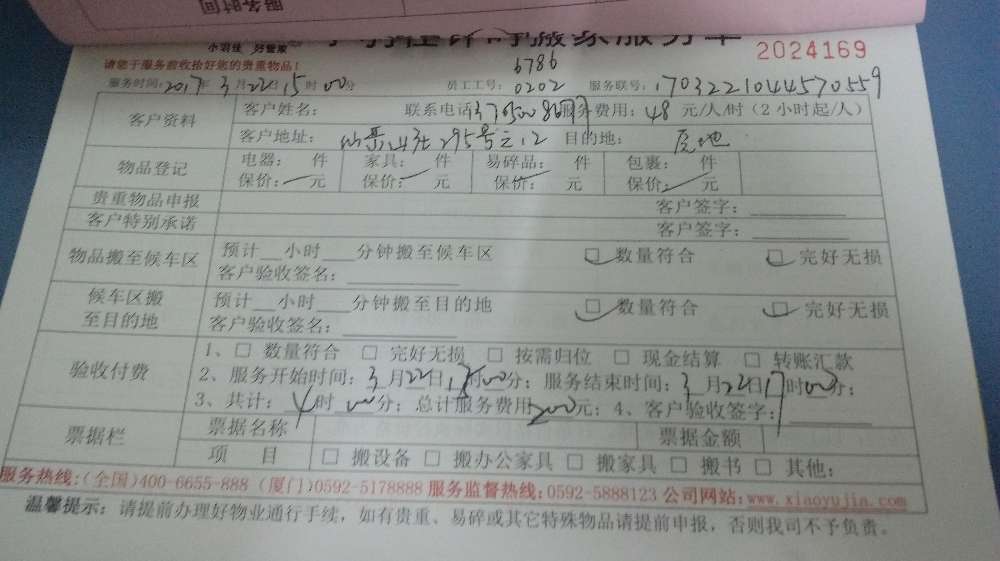 服务时间
小羽佳 好管家
搬家服务单
2024169
请您于服务前收拾好您的贵重物品!
6786
服务时间: 2017年 3月22日15时00分 员工工号: 0202 服务联号: 1703221044570559
客户资料
客户姓名: 联系电话: 服务费用: 48 元/人/时 (2小时起/人)
客户地址: 仙岳山社295号之12 目的地: 原地
物品登记
电器: 件 家具: 件 易碎品: 件 包裹: 件
保价: 元 保价: 元 保价: 元 保价: 元
贵重物品申报 客户签字:
客户特别承诺 客户签字:
物品搬至候车区 预计__小时___分钟搬至候车区 □ 数量符合 □ 完好无损
客户验收签名:
候车区搬至目的地
预计__小时___分钟搬至目的地 □ 数量符合 □ 完好无损
客户验收签名:
验收付费
1、□ 数量符合 □ 完好无损 □ 按需归位 □ 现金结算 □ 转账汇款
2、服务开始时间: 3月22日15时00分; 服务结束时间: 3月22日17时00分;
3、共计: 4时00分; 总计服务费用200元; 4、客户验收签字:
票据栏
票据名称 票据金额
项 目 □ 搬设备 □ 搬办公家具 □ 搬家具 □ 搬书 □ 其他:
服务热线:(全国)400-6655-888 (厦门)0592-5178888 服务监督热线:0592-5888123 公司网站:www.xiaoyujin.com
温馨提示: 请提前办理好物业通行手续, 如有贵重、易碎或其它特殊物品请提前申报, 否则我司不予负责。